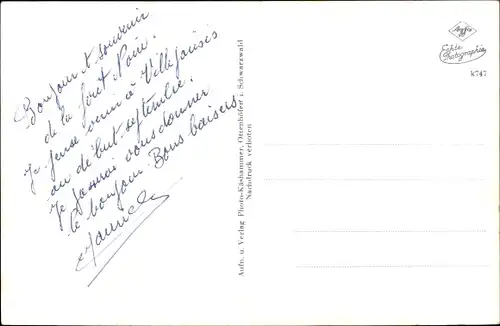 Bonjour & souvenir
de la forêt Noire.
Je pense venir à Villejousis
au début septembre.
Je passerai vous donner
le bonjour Bons baisers
Aufn. u. Verlag Photo-Käshammer, Ottenhöfen i. Schwarzwald
Nachdruck verboten
Agfa
Echte
Photographie
K747